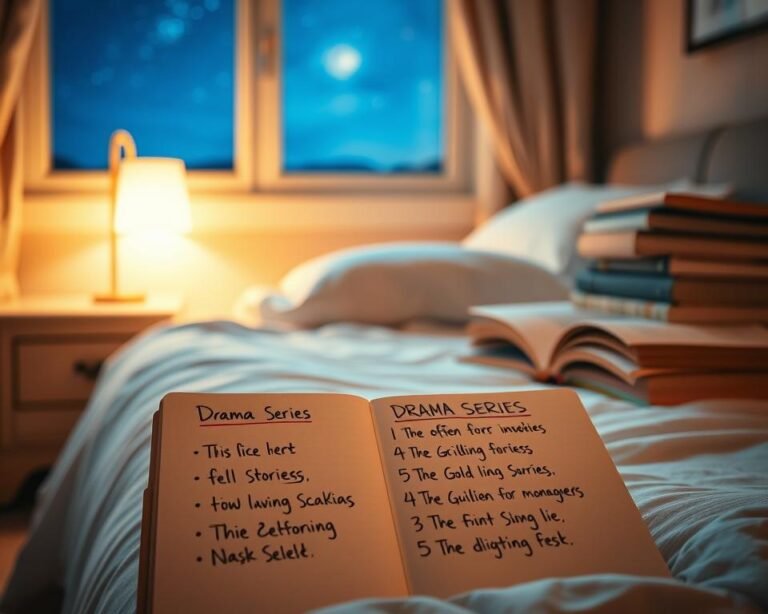 Drama Series
• This fice hert
• fell Storiess,
• tow laving Scakias
• Thie Zetforning
• Nask Selelt.
DRAMA SERIES
1 The ofien forr invities
4 The Grilling forriess
5 The Gold ling Sorries,
4 The Guilien for managers
3 The firint Slmg lie,
5 The digting fest.